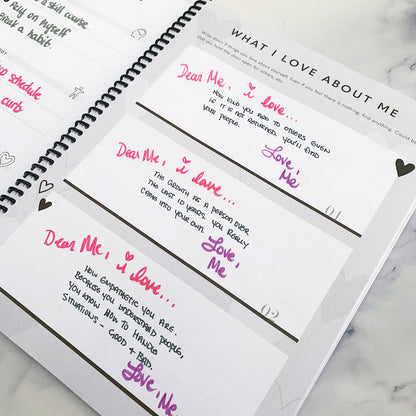 a skill course.
Rely on myself
Break a habit.
schedule
curb
WHAT I LOVE ABOUT ME
Write down 3 things you love about yourself. Even if you feel there is nothing, find anything. Could be
that you hold the door open for others, etc.
Dear Me, i love...
HOW KIND YOU ARE TO OTHERS EVEN
IF IT IS NOT RETURNED. YOU'LL FIND
YOUR PEOPLE.
Love,
Me
01
Dear Me, i love...
THE GROWTH AS A PERSON OVER
THE LAST 10 YEARS. YOU REALLY
CAME INTO YOUR OWN.
Love,
Me
02
Dear Me, i love...
HOW EMPATHETIC YOU ARE.
BECAUSE YOU UNDERSTAND PEOPLE,
YOU KNOW HOW TO HANDLE
SITUATIONS - GOOD + BAD.
Love,
Me